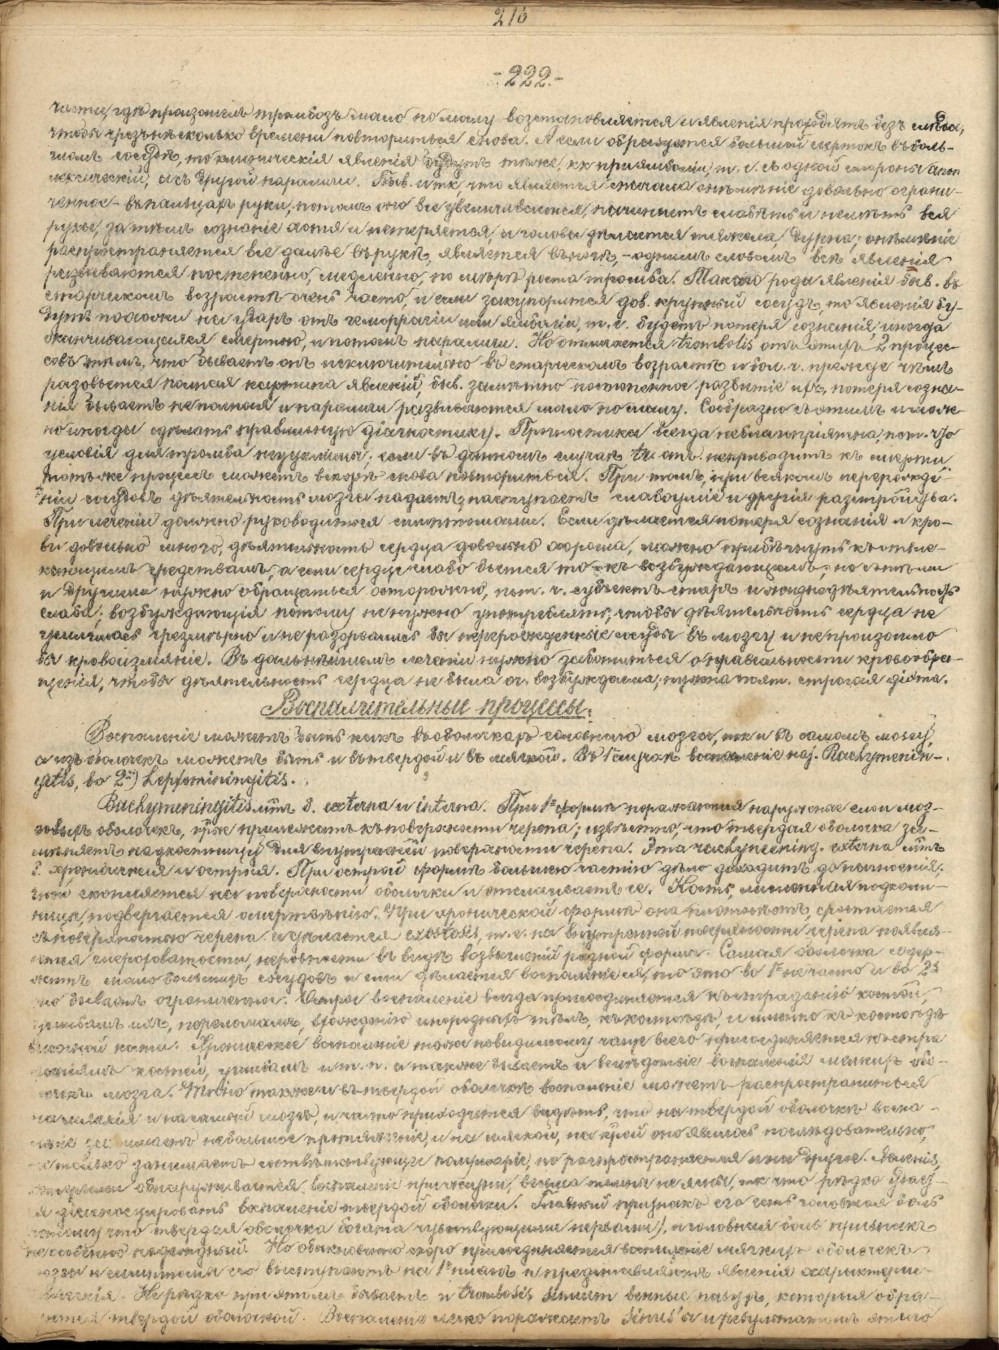 216
-222.-
части, гдѣ произошелъ тромбозъ мало по малу возстановляется и явленія проходятъ безъ слѣда,
чтобы чрезъ нѣсколько времени повториться снова. А если образуется большой свертокъ въ боль-
шомъ сосудѣ, то клиническія явленія будутъ тѣже, кк при эмболіи, т. е. съ одной стороны апоп
лексическій, а съ другой параличи. Быв. и тк, что является сначала онѣмѣніе довольно ограни-
ченное - въ пальцахъ руки, потомъ оно все увеличивается, начинаетъ слабѣть и неметь вся
рука, затѣмъ сознаніе хотя и не теряется, и голова дѣлается тяжела, дурна; онѣмѣніе
распространяется все далѣе въ рукѣ, является въ ногѣ, - однимъ словомъ всѣ явленія
развиваются постепенно, медленно, по мѣрѣ роста тромба. Такого рода явленія быв. въ
старческомъ возрастѣ очень часто, и если закупорится дов. крупный сосудъ, то явленія бу-
дутъ похожи на ударъ отъ геморрагіи или эмболіи, т. е. будетъ потеря сознанія, иногда
оканчивающаяся смертью, и потомъ параличи. Но отличается trombosis отъ этихъ 2 процес-
совъ тѣмъ, что бываетъ онъ исключительно въ старческомъ возрастѣ и бол. ч. прежде чѣмъ
разовьется полная картина явленій, быв. замѣтно постепенное развитіе ихъ, потеря созна-
нія бываетъ не полная и параличи развиваются мало по малу. Сообразно съ этимъ и мож-
но иногда сдѣлать правильную діагностику. Прогностика всегда неблагопріятна, пот. что
условія для тромба неудалимы; если въ данномъ случаѣ онъ не приводитъ къ смерти
тотъ же процессъ можетъ вскорѣ снова повториться. При томъ, при всякомъ перерожде-
ніи сосудовъ дѣятельность мозга падаетъ, наступаетъ слабоуміе и другія разстройства.
При леченіи должно руководиться симптомами. Если дѣлается потеря сознанія и кро-
ви довольно много, дѣятельность сердца довольно хороша, можно прибѣгнуть къ отвле-
кающимъ средствамъ, а если сердце слабо бьется то - къ возбуждающимъ; но съ тѣми
и другими нужно обращаться осторожно, пот. ч. субъектъ старъ и дѣятельность
слаба; возбуждающія потому не нужно употреблять, чтобы дѣятельность сердца не
усилилась чрезмѣрно и не разорвались бы перерожденные сосуды въ мозгу и не произошло
бы кровоизліяніе. Въ дальнѣйшемъ леченіи нужно заботиться о правильности кровообра-
щенія, чтобы дѣятельность сердца не была оч. возбуждаема; нужна поэт. строгая діэта.
Воспалительные процессы.
Воспаленіе можетъ быть какъ въ оболочкахъ головного мозга, тк и въ самомъ мозгу,
а изъ оболочекъ можетъ быть и въ твердой и въ мягкой. Въ 1 случаѣ воспаленіе наз. Pachymenin-
gitis, во 2) Leptomeningitis.
Pachymeningitis м. б. externa и interna. При 1й формѣ поражаются наружные слои моз-
говыхъ оболочекъ, прилежатъ къ поверхности черепа; извѣстно, что твердая оболочка за-
мѣняетъ надкостницу для внутренней поверхности черепа. Эта pachymening. externa м.
б. хроническая и острая. При острой формѣ большею частію дѣло доходитъ до нагноенія.
Гной скопляется на поверхности оболочки и отслаиваетъ ее. Кость, лишенная надкост-
ницы подвергается омертвѣнію. При хронической формѣ она плотнѣетъ, сростается
съ поверхностью черепа и дѣлается exostosis, т. е. на внутренней поверхности черепа появля-
ются шероховатости, неровности въ видѣ возвышеній разной формы. Самая оболочка содер-
житъ мало большихъ сосудовъ и если дѣлается воспаленіе ея, то это во 1хъ не часто и во 2хъ
но бываетъ ограниченное. Острое воспаленіе всегда присоединяется къ страданію костей,
ушибамъ ихъ, переломамъ, вхожденію инородныхъ тѣлъ, къ костоѣдѣ, и именно къ костоѣдѣ
височной кости. Хроническое воспаленіе тоже повидимому чаще всего присоединяется къ стра
даніямъ костей, ушибамъ и т. п. а также бываетъ и вслѣдствіе воспаленія мягкихъ обо-
лочекъ мозга. Точно также и въ твердой оболочкѣ воспаленіе можетъ распространиться
на мягкія и на самый мозгъ, и часто приходится видѣть, что на твердой оболочкѣ воспа-
леніе имѣетъ небольшое протяженіе, и на мягкой, на крой оно явилось послѣдовательно,
не только занимаетъ соотвѣтствующее полушаріе, но распространяется и на другое. Явленія,
которыми обнаруживается воспаленіе при жизни, весьма темны, не ясны, тк что рѣдко удает-
ся діагносцировать воспаленіе твердой оболочки. Главный признакъ его есть головная боль
потому что твердая оболочка богата чувствующими нервами), а головная боль признакъ
совершенно ненадежный. Но обыкновенно скоро присоединяется воспаленіе мягкихъ оболочекъ
мозга и симптомы его выступаютъ на 1й планъ и представляются явленія характери-
стическія. Не рѣдко при этомъ бываетъ и trombosis sinuum венныхъ пазухъ, которыя обра-
зуются твердой оболочкой. Воспаленіе легко поражаетъ sinus'ы и результатомъ этого